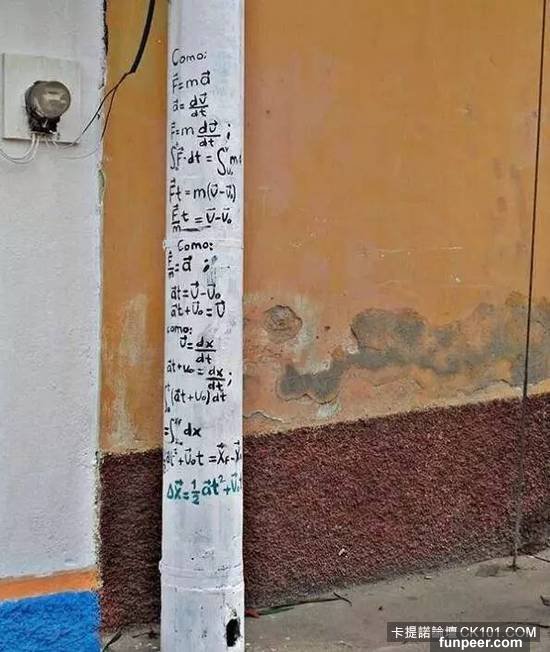 Como:
F⃗=ma⃗
a⃗=dv⃗/dt
F⃗=m dv⃗/dt;
∫F⃗·dt=∫m
F⃗t=m(v⃗-v⃗₀)
F⃗/m t=v⃗-v⃗₀
Como:
F⃗/m=a⃗;
a⃗t=v⃗-v⃗₀
a⃗t+v⃗₀=v⃗
Como:
v⃗=dx/dt
a⃗t+v₀=dx/dt;
∫(a⃗t+v₀)dt
=∫dx
t²+v⃗₀t=x⃗f-x⃗
Δx⃗=½a⃗t²+v⃗₀t
卡提諾論壇 CK101.COM
funpeer.com